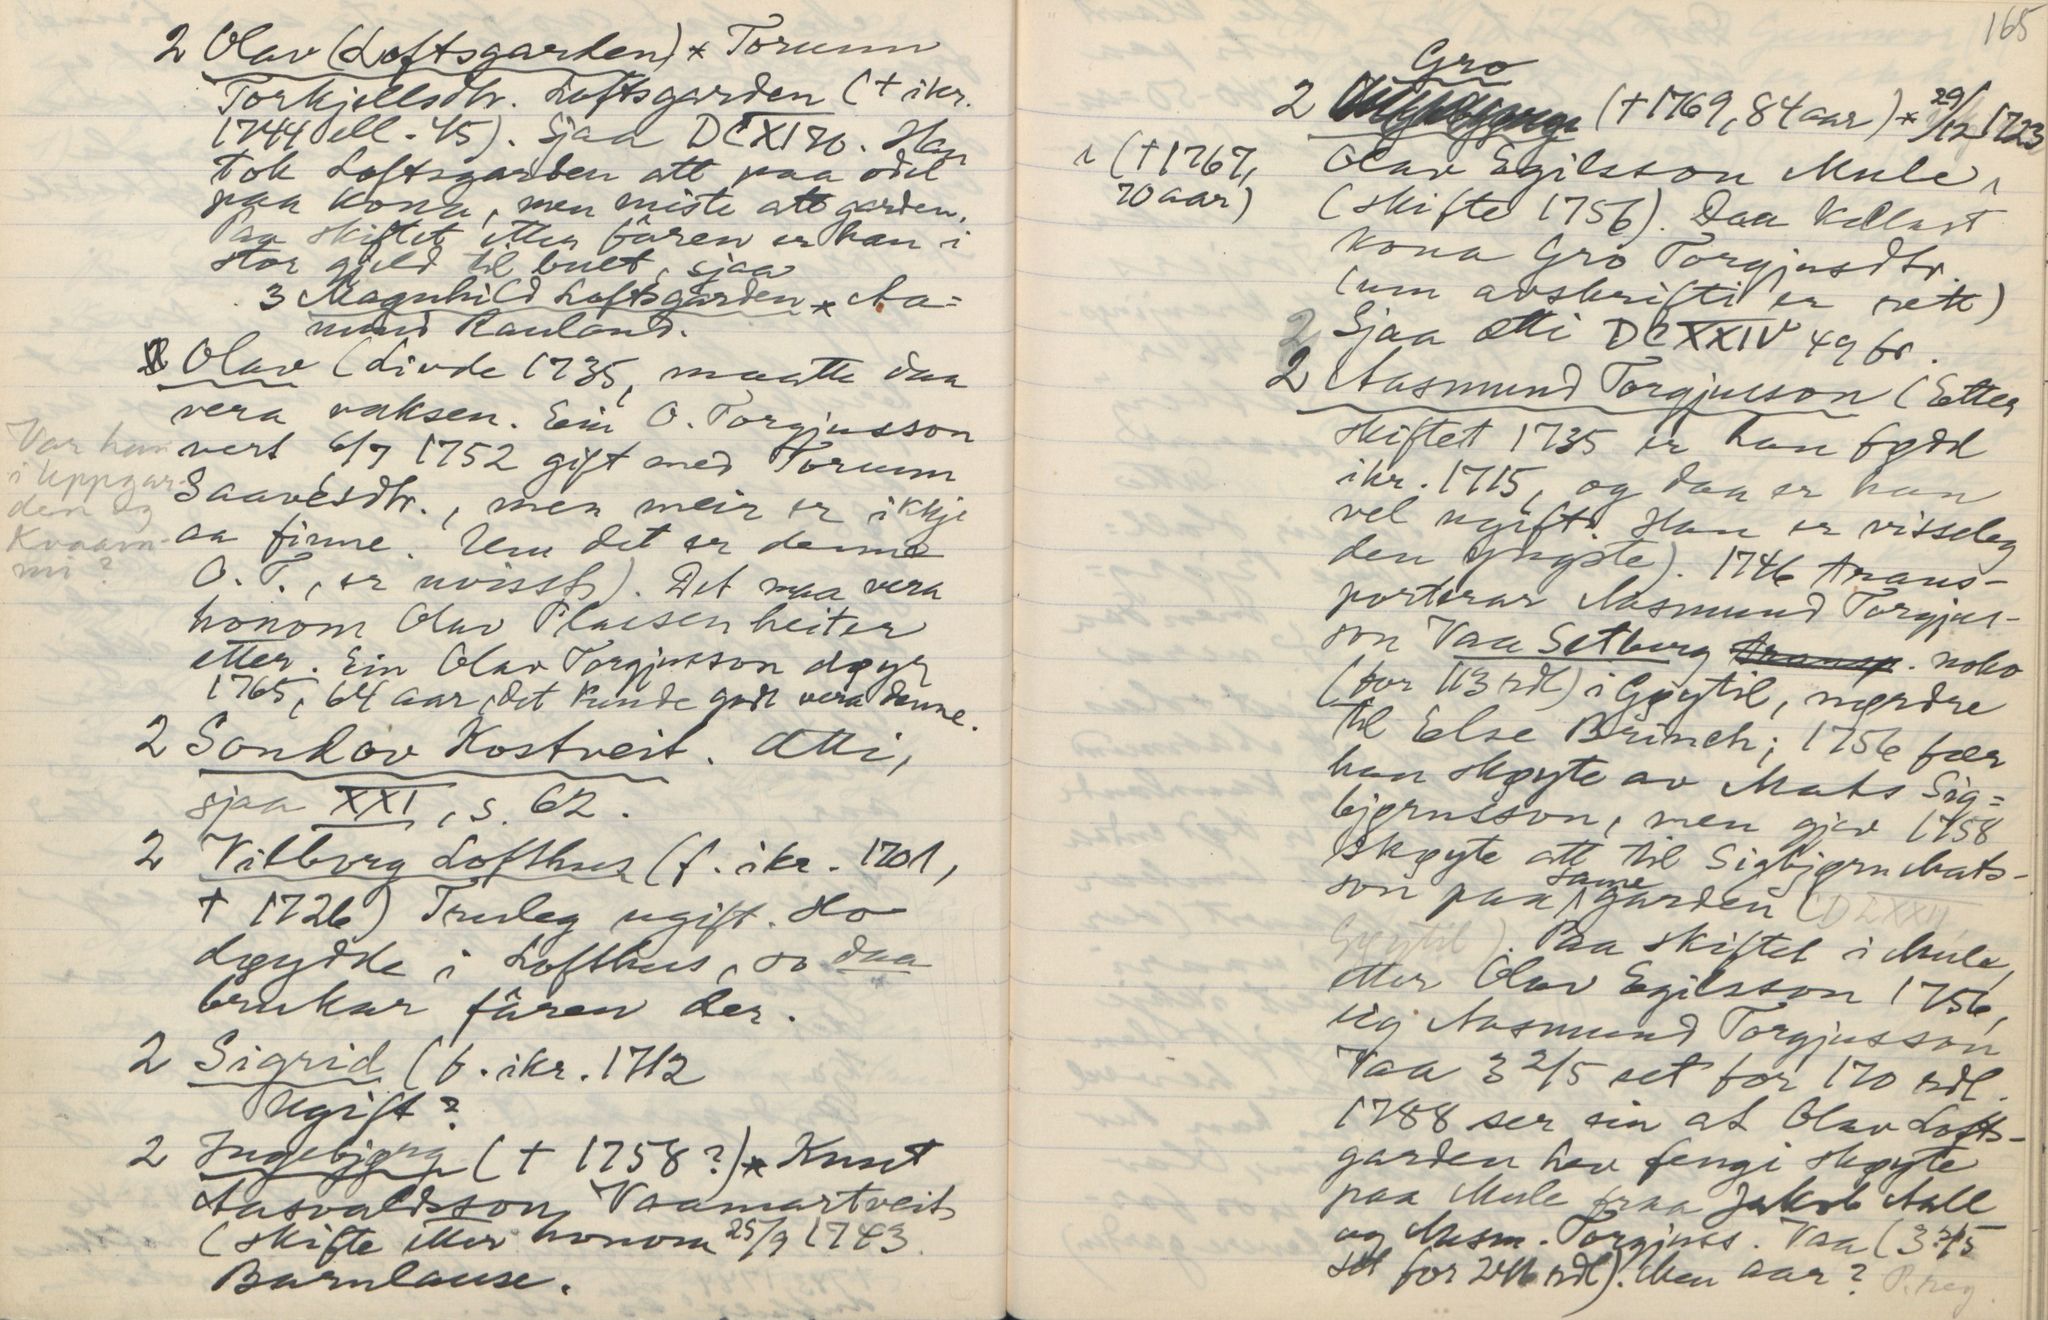 2 Olav (Loftsgarden) * Torunn
Torkjellsdtr. Loftsgarden († ikr.
1744 ell. 45). Sjaa DCXI 70. Han
tok Loftsgarden att paa odel
paa kona, men miste att garden.
Paa skiftet etter fâren er han i
stor gjeld til buet, sjaa
3 Magnhild Loftsgarden * Aa=
mund Rauland.
2 Olav (Livde 1735, maatte daa
vera vaksen. Ein O. Torgjusson
vert 6/7 1752 gift med Torunn
Saavesdtr., men meir er ikkje
aa finne. Um det er denne
O. T., er uvisst). Det maa vera
honom Olav Plassen heiter
etter. Ein Olav Torgjusson døyr
1765, 64 aar, det kunde godt vera denne.
Var han
i Uppgar-
den og
Kvaam-
mi?
2 Sondov Kostveit. Atti,
sjaa XXI, s. 62.
2 Vilborg Lofthus (f. ikr. 1701,
† 1726) Truleg ugift. Ho
døydde i Lofthus, so daa
brukar fâren der.
2 Sigrid (f. ikr. 1712
Ugift?
2 Ingebjørg († 1758?) * Knut
Aasvaldsson Vaamartveit
(skifte etter honom 25/9 1743.
Barnlause.
165
Gro
2 († 1769, 84 aar) * 29/12 1723
Olav Egilsson Mule
(† 1767,
70 aar)
(skifte 1756). Daa kallast
kona Gro Torgjusdtr.
(um avskrifti er rett)
2 Sjaa atti DCXXIV 49 fr.
2 Aasmund Torgjusson (Etter
skiftet 1735 er han fødd
ikr. 1715, og daa er han
vel ugift. Han er visseleg
den yngste). 1746 trans-
porterar Aasmund Torgjus-
son Vaa Setburg transp. noko
(for 113 rdl) i Gøytil, nørdre
til Else Brinch; 1756 fær
han skøyte av Mats Sig=
bjørnsson, men gjev 1758
skøyte att til Sigbjørn Mats-
son paa same garden (DLXXII
Gøytil). Paa skiftet i Mule,
etter Olav Egilsson 1756,
eig Aasmund Torgjusson
Vaa 3 2/5 set for 170 rdl.
1788 ser ein at Olav Lofts-
garden hev fengi skøyte
paa Mule fraa Jakob Aall
og Aasm. Torgjuss. Vaa (3 2/5
set for 246 rdl). Men aar? P.reg.